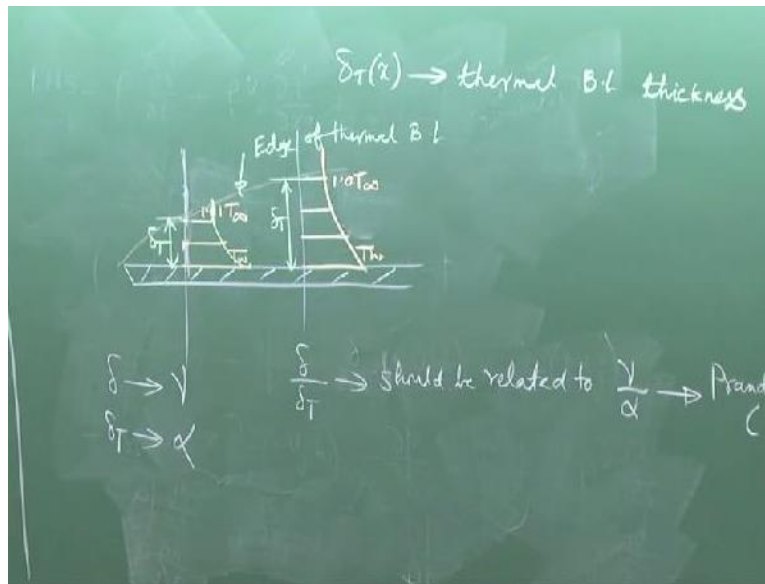 δT(x) → thermal B.L thickness
Edge of thermal B L
1.01T∞
1.0T∞
δT
δT
Tw
Tw
δ → ν
δ/δT → should be related to ν/α → Prand
δT → α
(